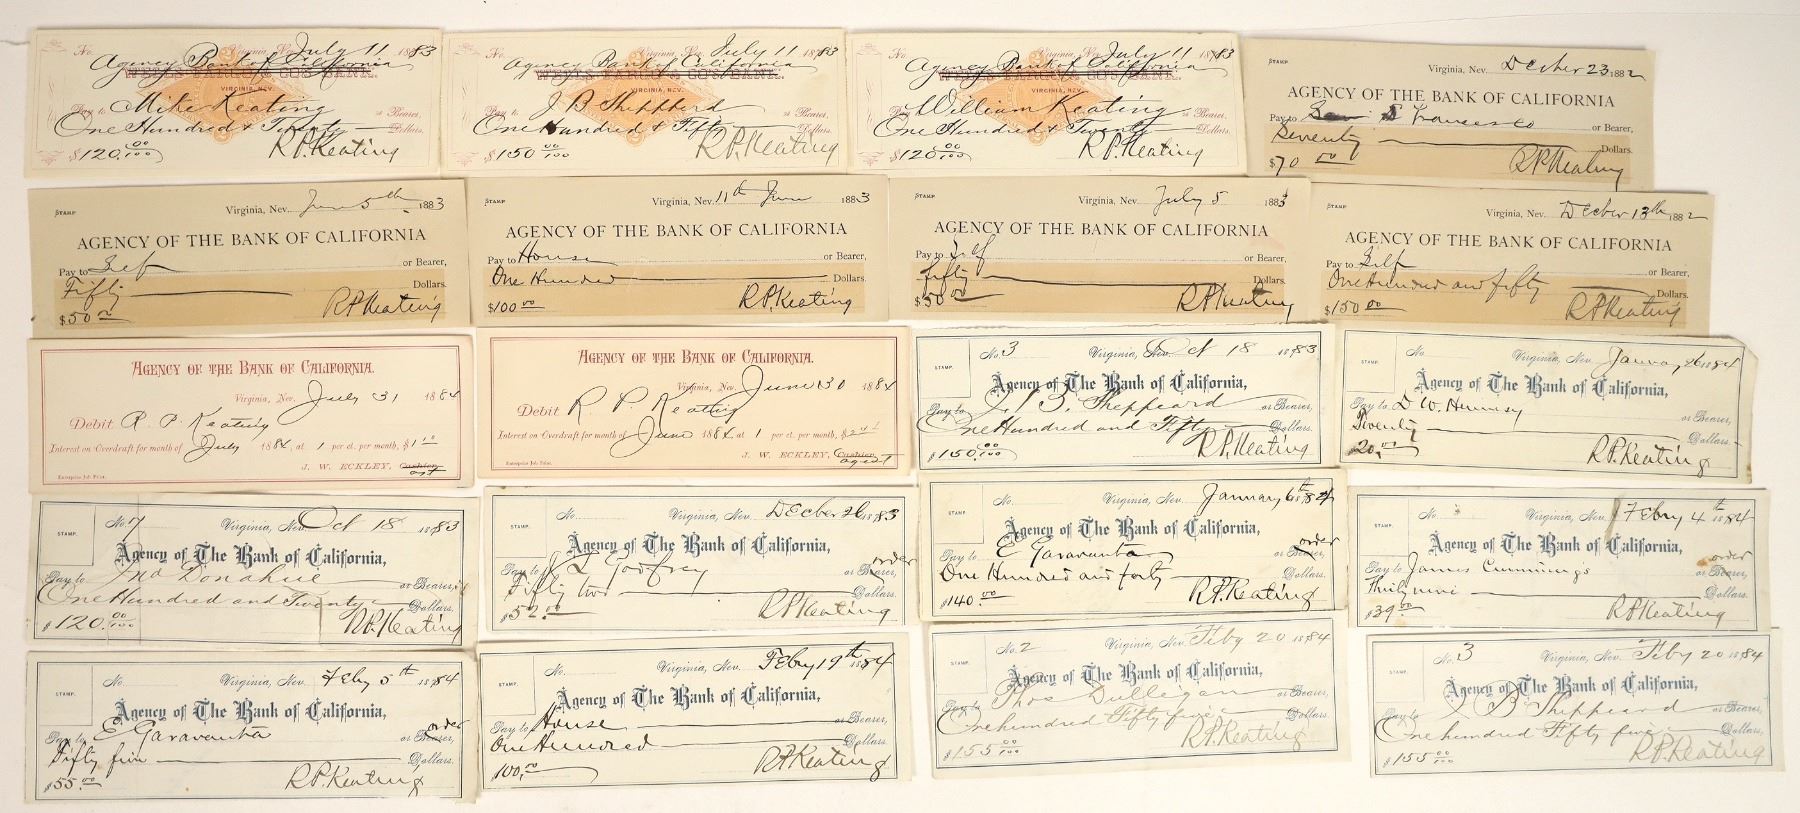 No. Virginia, Nev. July 11 1883
Agency Bank of California
WELLS FARGO & CO'S BANK.
VIRGINIA, NEV.
Pay to Mike Keating or Bearer,
One Hundred & Twenty Dollars.
$120.00/100 R.P. Keating
Virginia, Nev. July 11 1883
Agency Bank of California
WELLS FARGO & CO'S BANK.
VIRGINIA, NEV.
Pay to J B Sheppherd or Bearer,
One Hundred & Fifty Dollars.
$150 00/100 R.P. Keating
No. Virginia, Nev. July 11 1883
Agency Bank of California
WELLS FARGO & CO'S BANK.
VIRGINIA, NEV.
Pay to William Keating or Bearer,
One Hundred & Twenty Dollars.
$120 00/100 R.P. Keating
STAMP Virginia, Nev. Decber 23 1882
AGENCY OF THE BANK OF CALIFORNIA
Pay to Francesco or Bearer,
Seventy Dollars.
$70 00 R P Keating
STAMP Virginia, Nev. June 5th 1883
AGENCY OF THE BANK OF CALIFORNIA
Pay to Self or Bearer,
Fifty Dollars.
$50 00 R P Keating
STAMP Virginia, Nev. 11th June 1883
AGENCY OF THE BANK OF CALIFORNIA
Pay to House or Bearer,
One Hundred Dollars.
$100 00 R.P. Keating
STAMP Virginia, Nev. July 5 1883
AGENCY OF THE BANK OF CALIFORNIA
Pay to or Bearer,
Fifty Dollars.
$50 00 R P Keating
STAMP Virginia, Nev. Decber 13th 1882
AGENCY OF THE BANK OF CALIFORNIA
Pay to Self or Bearer,
One Hundred and fifty Dollars.
$150 00 R P Keating
AGENCY OF THE BANK OF CALIFORNIA.
Virginia, Nev. July 31 1884
Debit R. P. Keating
Interest on Overdraft for month of July 1884 at 1 per ct. per month, $1 00
J. W. ECKLEY, Cashier
agt
Enterprise Job Print.
AGENCY OF THE BANK OF CALIFORNIA.
Virginia, Nev. June 30 1884
Debit R. P. Keating
Interest on Overdraft for month of June 1884, at 1 per ct. per month, $
J. W. ECKLEY, Cashier
agent
Enterprise Job Print.
STAMP. No. 3 Virginia, Nev. Oct 18 1883
Agency of The Bank of California,
Pay to J B. Sheppeard or Bearer,
One Hundred and Fifty Dollars.
$150.00/100 R.P. Keating
STAMP. No. Virginia, Nev. January 26 1884
Agency of The Bank of California,
Pay to D W. Hennesy or Bearer,
Seventy Dollars.
R.P. Keating
STAMP. No. 7 Virginia, Nev. Oct 18 1883
Agency of The Bank of California,
Pay to Jno Donahue or Bearer,
One Hundred and Twenty Dollars.
$120.00/100 R.P. Keating
STAMP. No. Virginia, Nev. Decber 26 1883
Agency of The Bank of California,
Pay to J L Godfrey or Bearer, order
Fifty two Dollars.
$52.00 R P Keating
STAMP. No. Virginia, Nev. January 6th 1884
Agency of The Bank of California,
Pay to E Garavanta or Bearer, order
One Hundred and forty Dollars.
$140.00 R.P. Keating
STAMP. No. Virginia, Nev. Febry 4th 1884
Agency of The Bank of California,
Pay to James Cummings or Bearer, order
Thirty nine Dollars.
$39 00 R P Keating
STAMP. No. Virginia, Nev. Feby 5th 1884
Agency of The Bank of California,
Pay to E Garavanta or Bearer, order
Fifty five Dollars.
$55.00 R.P. Keating
STAMP. No. Virginia, Nev. Febry 19th 1884
Agency of The Bank of California,
Pay to House or Bearer,
One Hundred Dollars.
$100.00 R.P. Keating
STAMP. No. 2 Virginia, Nev. Feby 20 1884
Agency of The Bank of California,
Pay to Thos Dulligan or Bearer,
One hundred Fifty five Dollars.
$155 00/100 R.P. Keating
STAMP. No. 3 Virginia, Nev. Feby 20 1884
Agency of The Bank of California,
Pay to J B Sheppeard or Bearer,
One hundred Fifty five Dollars.
$155 00/100 R.P. Keating